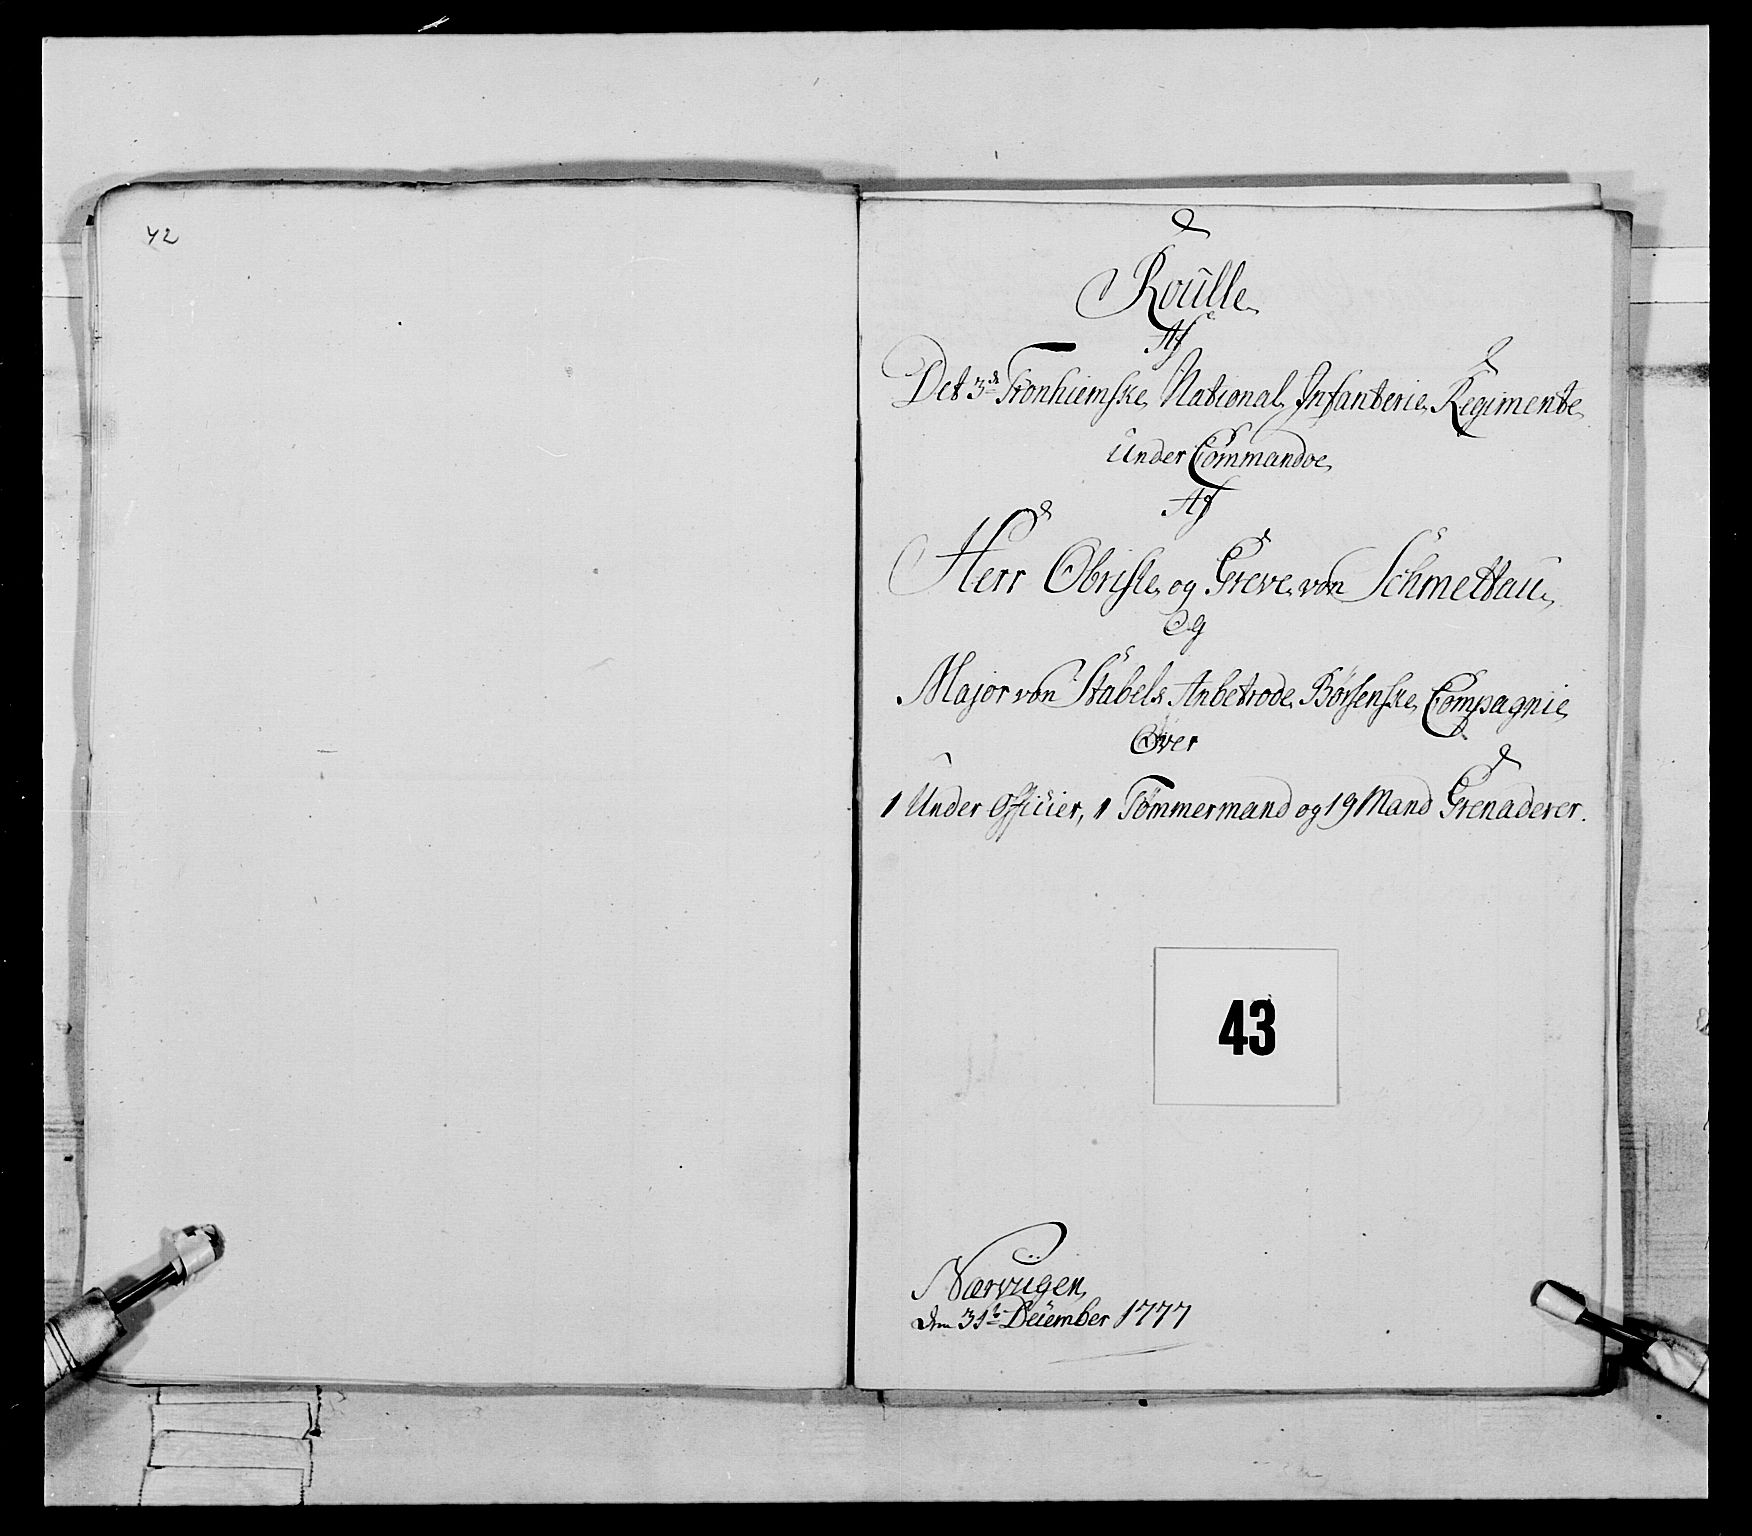 42
Roulle
Af
Det 3de Tronhiemske National Infanterie Regimente
Under Commandoe
Af
Herr Obriste og Greve von Schmettau
Og
Major von Stabels Anbetrode Börsenske Compagnie
Over
1 Under Officier, 1 Tömmermand og 19 Mand Grenaderer.
43
Nærvugen
den 31te December 1777